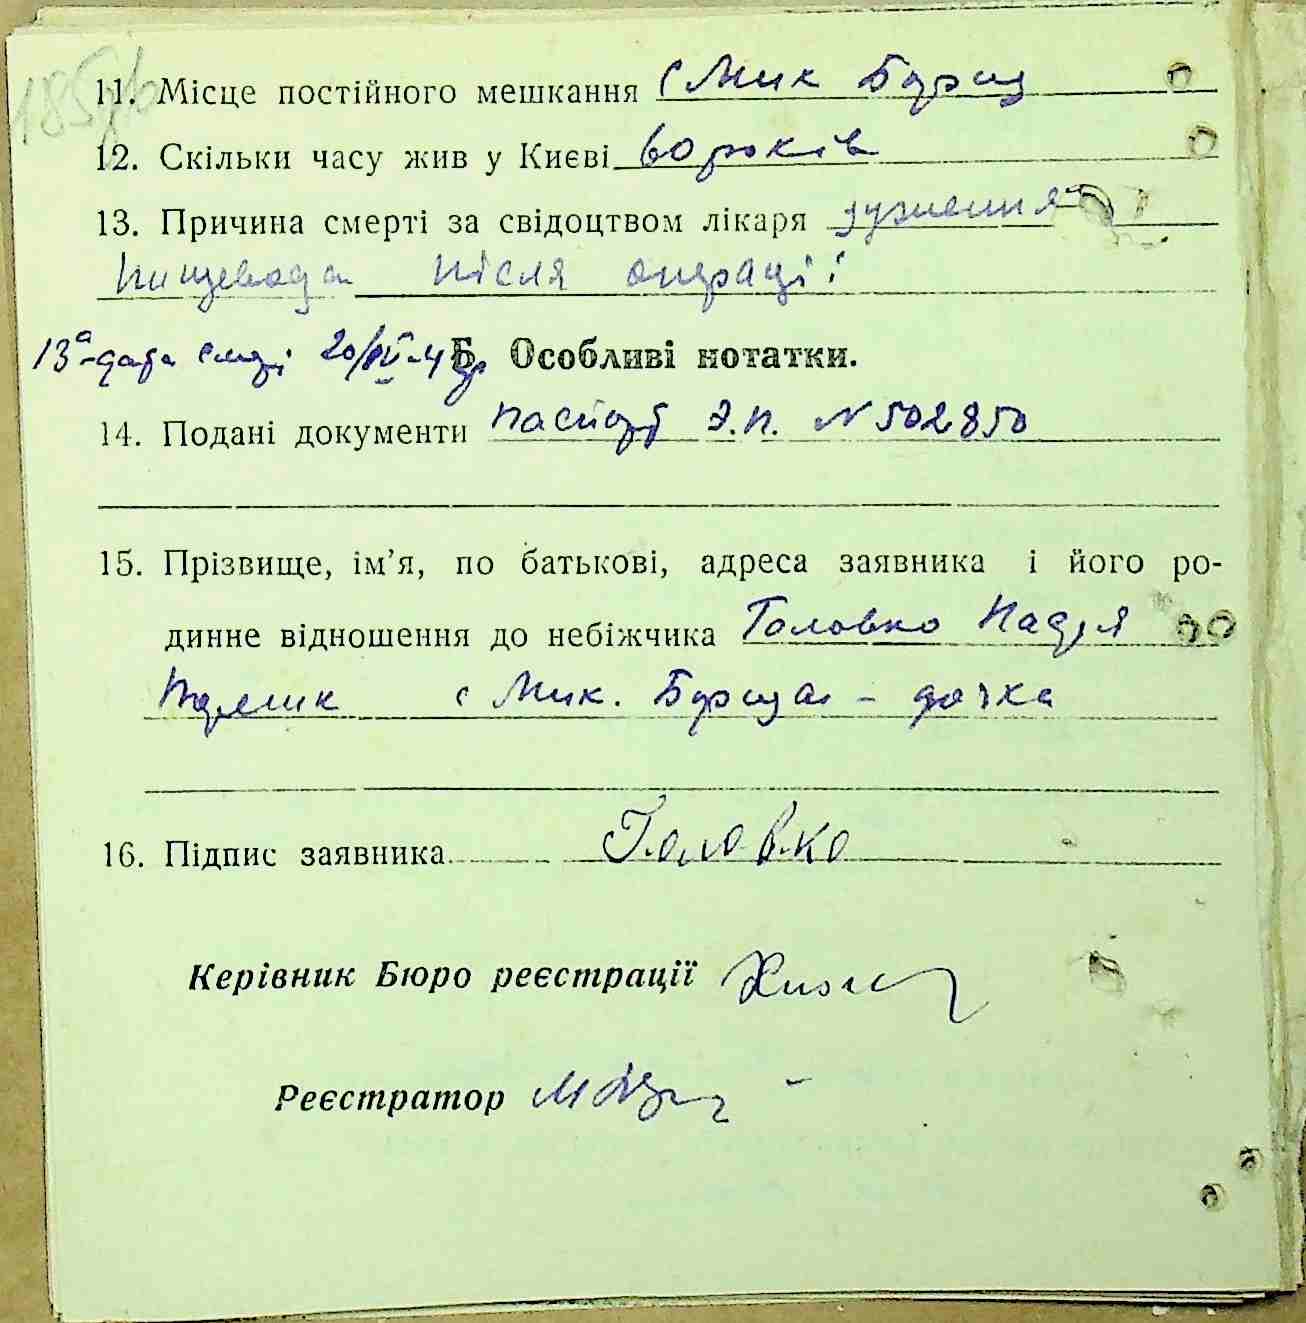 11. Місце постійного мешкання с Мик Борщ
12. Скільки часу жив у Києві 60 років
13. Причина смерті за свідоцтвом лікаря зуження
пищевода після операції
13а - дата смерті 20/IV-4 р
Б. Особливі нотатки.
14. Подані документи паспорт Э.П. N 502850
15. Прізвище, ім'я, по батькові, адреса заявника і його ро-
динне відношення до небіжчика Головко Надія
с Мик. Борща - дочка
16. Підпис заявника Головко
Керівник Бюро реєстрації
Реєстратор